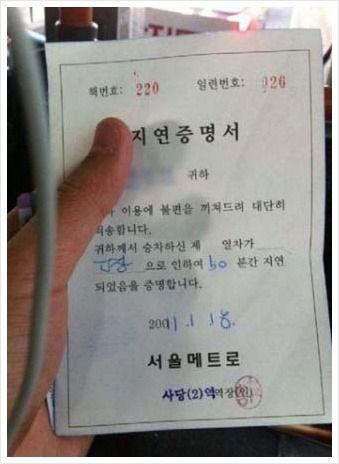 책번호: 220 일련번호: 026
지연증명서
귀하
이용에 불편을 끼쳐드려 대단히
죄송합니다.
귀하께서 승차하신 제 열차가
고장 으로 인하여 50 분간 지연
되었음을 증명합니다.
2011.1.18.
서울메트로
사당(2)역 역장(인)